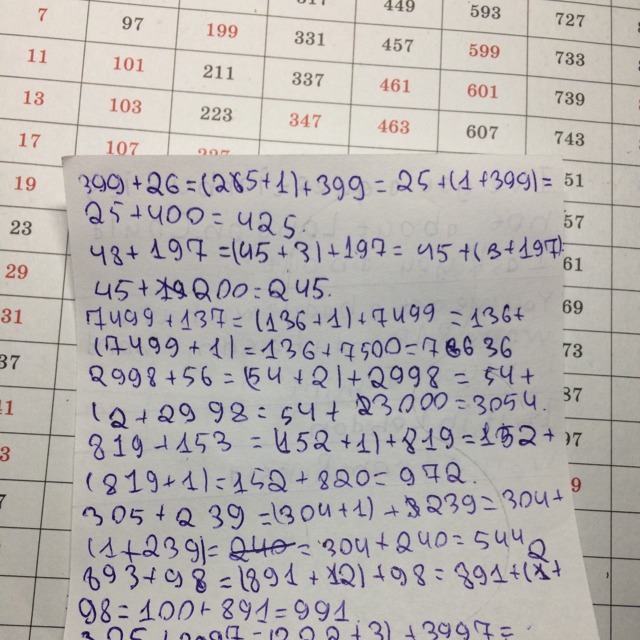 317 449 593 727
7 97 199 331 457 599 733
11 101 211 337 461 601 739
13 103 223 347 463 607 743
17 107
19 51
23 57
29 61
31 69
37 73
87
97
9
399+26=(25+1)+399=25+(1+399)=
25+400=425.
48+197=(45+3)+197=45+(3+197)=
45+200=245.
7499+137=(136+1)+7499=136+
(7499+1)=136+7500=7636
2998+56=(54+2)+2998=54+
(2+2998=54+3000=3054.
819+153=(152+1)+819=152+
(819+1)=152+820=972.
305+239=(304+1)+239=304+
(1+239)=240=304+240=544
893+98=(891+2)+98=891+(2+
98=100+891=991.
+3)+3997=